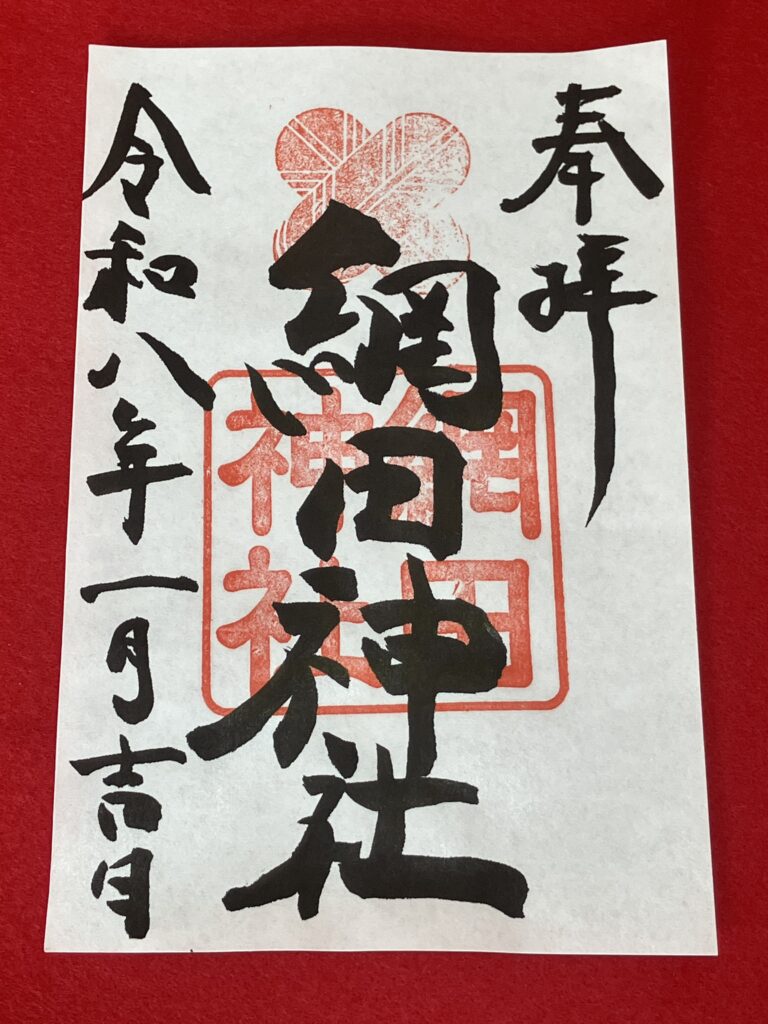 奉拝
網田神社
網田
神社
令和八年一月吉日